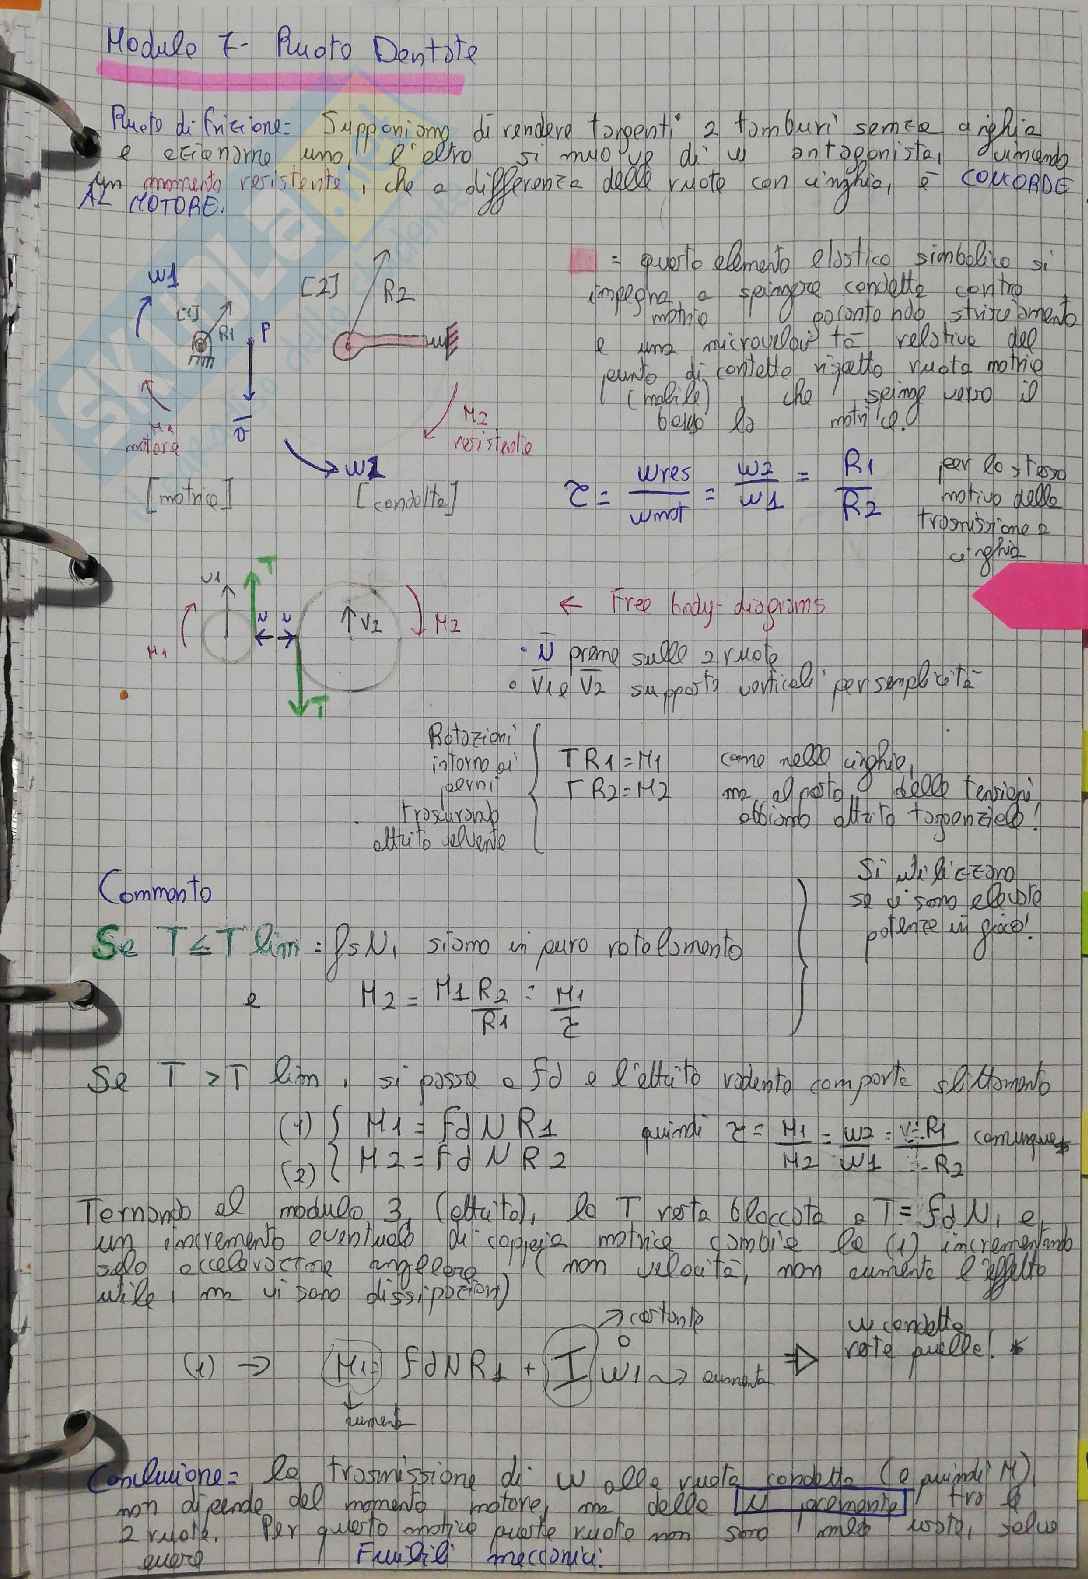 Modulo 7- Ruote Dentate
Ruote di frizione= Supponiamo di rendere tangenti 2 tamburi senza cinghia
e azionarne uno, l'altro si muove di w antagonista, vincendo
un momento resistente, che a differenza delle ruote con cinghia, è CONCORDE
AL MOTORE.
w1
[1]
R1
P
[2]
R2
M1
motore
v
M2
resistente
w2
[motrice]
[condotta]
= questo elemento elastico simbolico si
impegna a spingere condotta contro
motrice
e una microvelocità relativa del
punto di contatto rispetto ruota motrice
(mobile), che spinge verso il
basso la motrice.
τ = wres/wmot = w2/w1 = R1/R2
per lo stesso
motivo della
trasmissione a
cinghia
V1
T
N
N
V2
M1
M2
T
← Free body-diagrams
• N preme sulle 2 ruote
• V1 e V2 supposte verticali per semplicità
Rotazioni
intorno ai
perni
trascurando
attrito volvente
TR1=M1
TR2=M2
come nelle cinghie,
ma al posto delle tensioni
abbiamo attrito tangenziale!
Commento
Se T ≤ T lim = fsN, siamo in puro rotolamento
e M2 = M1 R2/R1 = M1/τ
Si utilizzano
se vi sono elevate
potenze in gioco!
Se T > T lim, si passa a fd e l'attrito radente comporta slittamento
(1) M1 = fd N R1
(2) M2 = fd N R2
quindi τ = M1/M2 = w2/w1 = R1/R2 comunque
Tornando al modulo 3, (attrito), la T resta bloccata a T = fd N, e
un incremento eventuale di coppia motrice cambia la (1) incrementando
solo accelerazione angolare (non velocità, non aumenta l'effetto
utile, ma vi sono dissipazioni)
(1) → M1= fdNR1 + I ẇ1 → aumenta ⇒
costante
aumenta
w condotta
resta quella! *
Conclusione= la trasmissione di w alla ruota condotta (e quindi M)
non dipende dal momento motore, ma dalla N premente tra le
2 ruote. Per questo motivo queste ruote non sono molto usate, salvo
avere Fusibili meccanici.